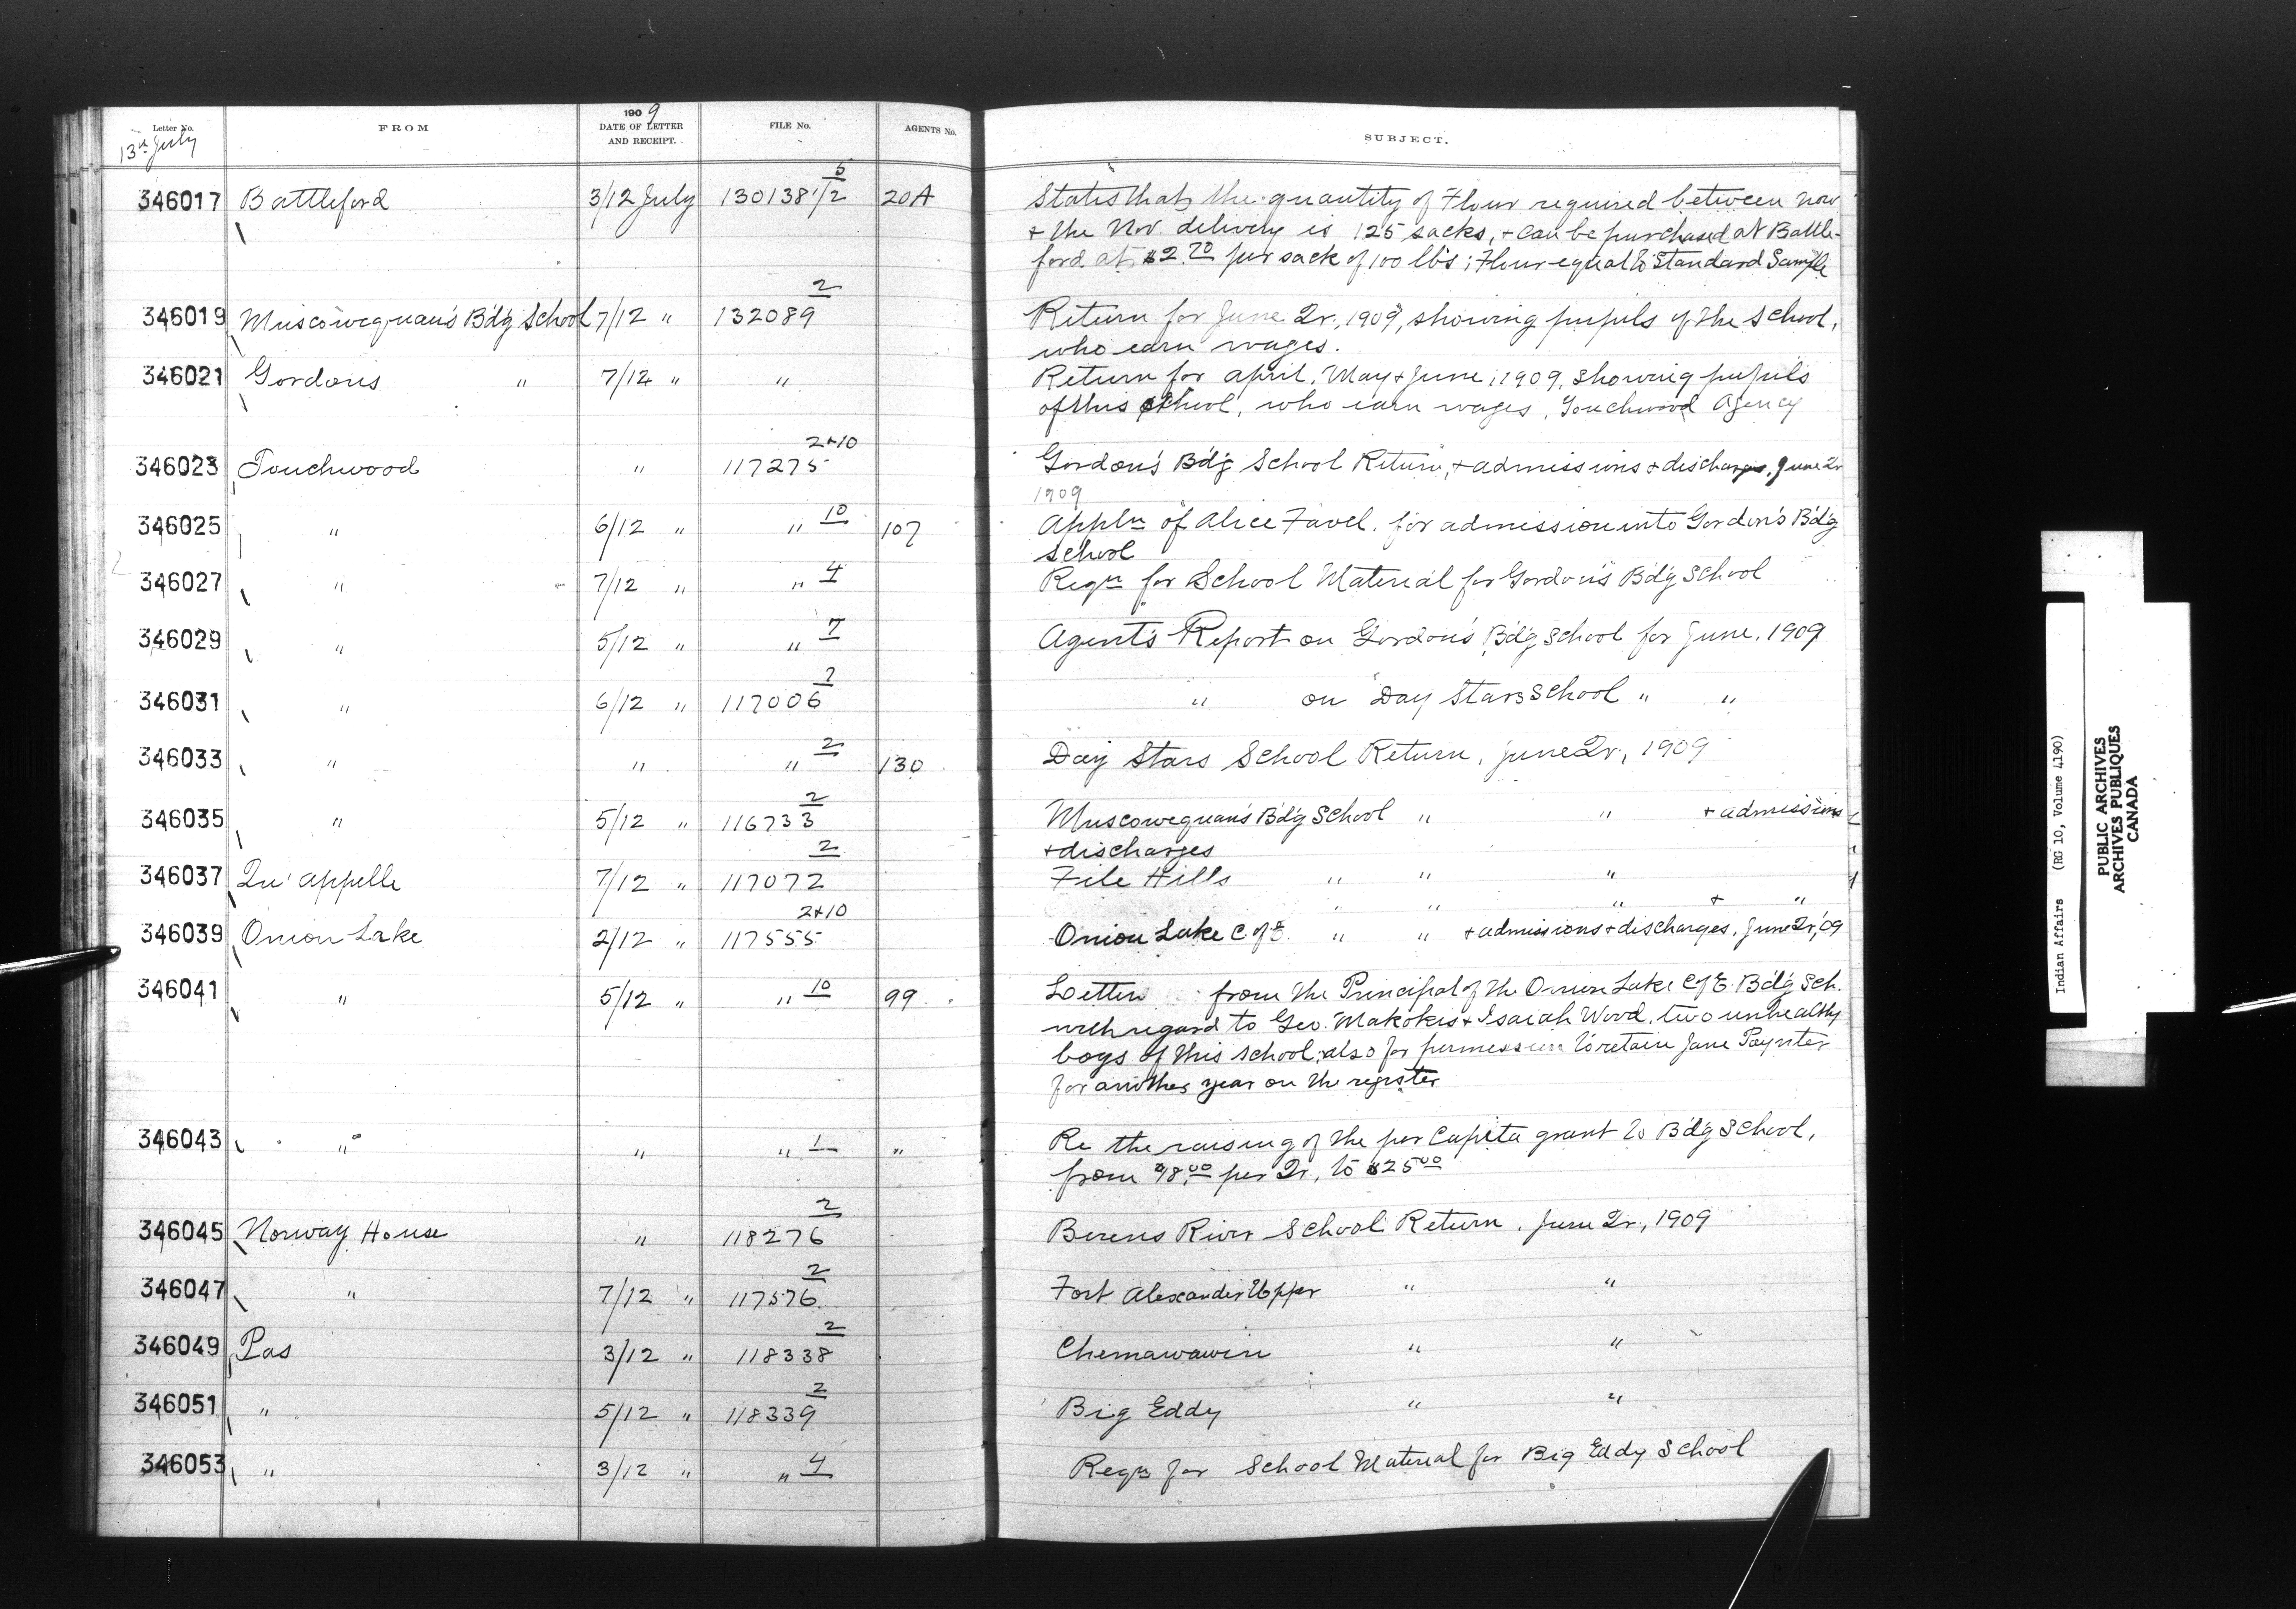 Letter No. FROM 1909 DATE OF LETTER AND RECEIPT. FILE No. AGENTS No. SUBJECT.
13th July
346017 Battleford 3/12 July 130138 1/2 5 20A States that the quantity of Flour required between now
+ the Nov. delivery is 125 sacks, + can be purchased at Battle-
ford at $2.70 per sack of 100 lbs; Flour equal to Standard Sample
346019 Muscowequan's Bd'g School 7/12 " 132089 2 Return for June Qr., 1909, showing pupils of the school,
who earn wages.
346021 Gordons " 7/12 " " Return for April, May + June, 1909, showing pupils
of this school, who earn wages, Touchwood Agency
346023 Touchwood " 117275 2+10 Gordon's Bd'g School Return, + admissions + discharges, June Qr
1909
346025 " 6/12 " " 10 107 Appln of Alice Favel, for admission into Gordon's Bd'g
School
346027 " 7/12 " " 4 Reqn for School Material for Gordon's Bd'g School
346029 " 5/12 " " 7 Agent's Report on Gordon's Bd'g School for June, 1909
346031 " 6/12 " 117006 7 " on Day Stars School " "
346033 " " " 2 130 Day Stars School Return, June Qr., 1909
346035 " 5/12 " 116733 2 Muscowequan's Bd'g School " " + admissions
+ discharges
346037 Qu'appelle 7/12 " 117072 2 File Hills " " "
" " " + "
346039 Onion Lake 2/12 " 117555 2+10 Onion Lake C of E. " " + admissions + discharges, June Qr,'09
346041 " 5/12 " " 10 99 Letter from the Principal of the Onion Lake C of E. Bd'g Sch.
with regard to Geo. Makokis + Isaiah Wood, two unhealthy
boys of this school; also for permission to retain Jane Paynter
for another year on the register
346043 " " " 1 " Re the raising of the per Capita grant to Bd'g School,
from 18.00 per Qr., to $25.00
346045 Norway House " 118276 2 Berens River School Return, June Qr., 1909
346047 " 7/12 " 117576 2 Fort Alexander Upper " "
346049 Pas 3/12 " 118338 2 Chemawawin " "
346051 " 5/12 " 118339 2 Big Eddy " "
346053 " 3/12 " " 4 Reqn for School Material for Big Eddy School
Indian Affairs (RG 10, Volume 4190)
PUBLIC ARCHIVES
ARCHIVES PUBLIQUES
CANADA